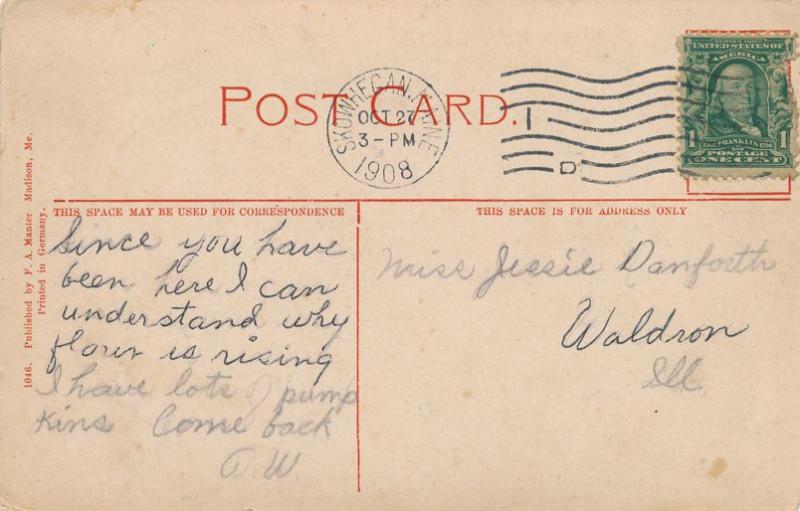 POST CARD.
SKOWHEGAN, MAINE
OCT 27
3-PM
1908
1
D
SERIES 1902
UNITED STATES OF
AMERICA
1 FRANKLIN 1790 1
POSTAGE
ONE CENT
1046. Published by F. A. Manter Madison, Me.
Printed in Germany.
THIS SPACE MAY BE USED FOR CORRESPONDENCE
Since you have
been here I can
understand why
flour is rising
I have lots of pump
kins Come back
THIS SPACE IS FOR ADDRESS ONLY
Miss Jessie Danforth
Waldron
Ill.